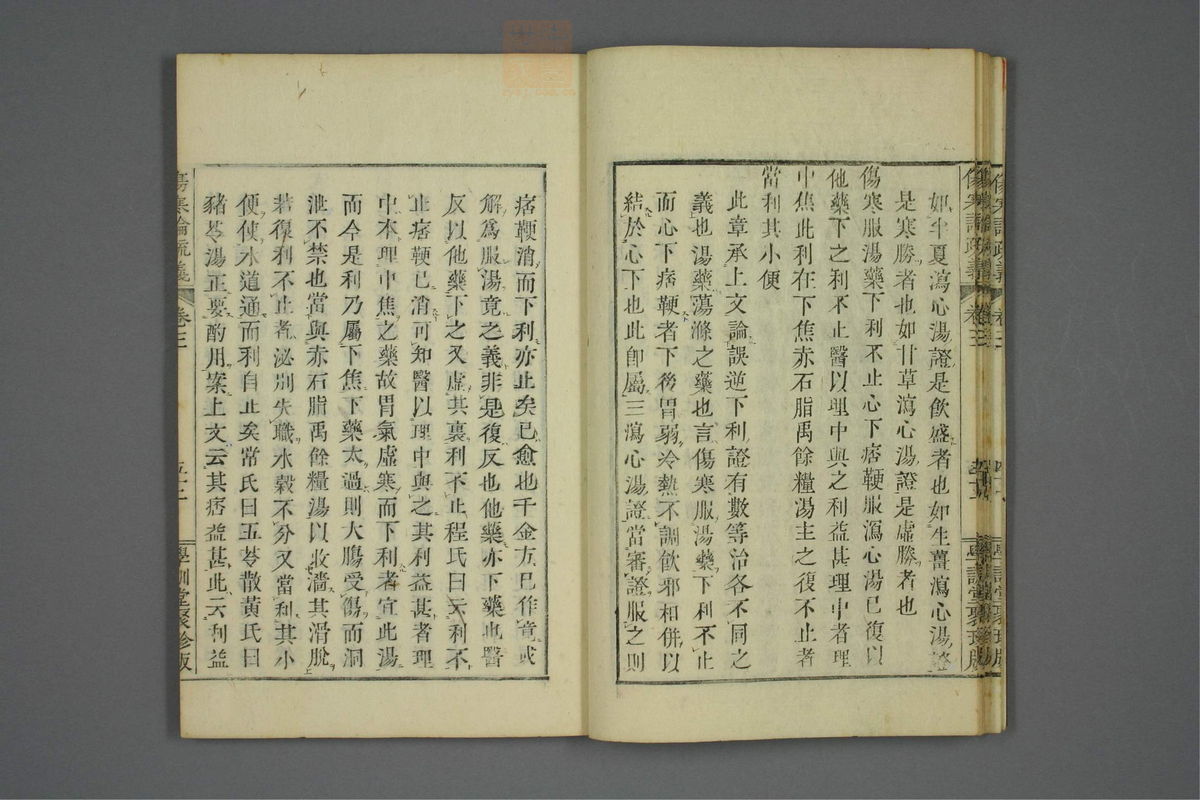 如半夏瀉心湯證是飮盛者也如生薑瀉心湯證
是寒勝者也如甘草瀉心湯證是虛勝者也
傷寒服湯藥下利不止心下痞鞕服瀉心湯已復以
他藥下之利不止醫以理中與之利益甚理中者理
中焦此利在下焦赤石脂禹餘糧湯主之復不止者
當利其小便
此章承上文論誤逆下利證有數等治各不同之
義也湯藥蕩滌之藥也言傷寒服湯藥下利不止
而心下痞鞕者下後胃弱冷熱不調飮邪相併以
結於心下也此卽屬三瀉心湯證當審證服之則
痞鞕消而下利亦止矣已愈也千金方已作竟或
解爲服湯竟之義非是復反也他藥亦下藥也醫
反以他藥下之又虛其裏利不止程氏曰云利不
止痞鞕已消可知醫以理中與之其利益甚者理
中本理中焦之藥故胃氣虛寒而下利者宜此湯
而今是利乃屬下焦下藥太過則大腸受傷而洞
泄不禁也當與赤石脂禹餘糧湯以收濇其滑脫
若復利不止者泌別失職水穀不分又當利其小
便使水道通而利自止矣常氏曰五苓散黃氏曰
豬苓湯正要酌用案上文云其痞益甚此云利益
傷寒論疏義
卷三
五十二
學訓堂聚珍版